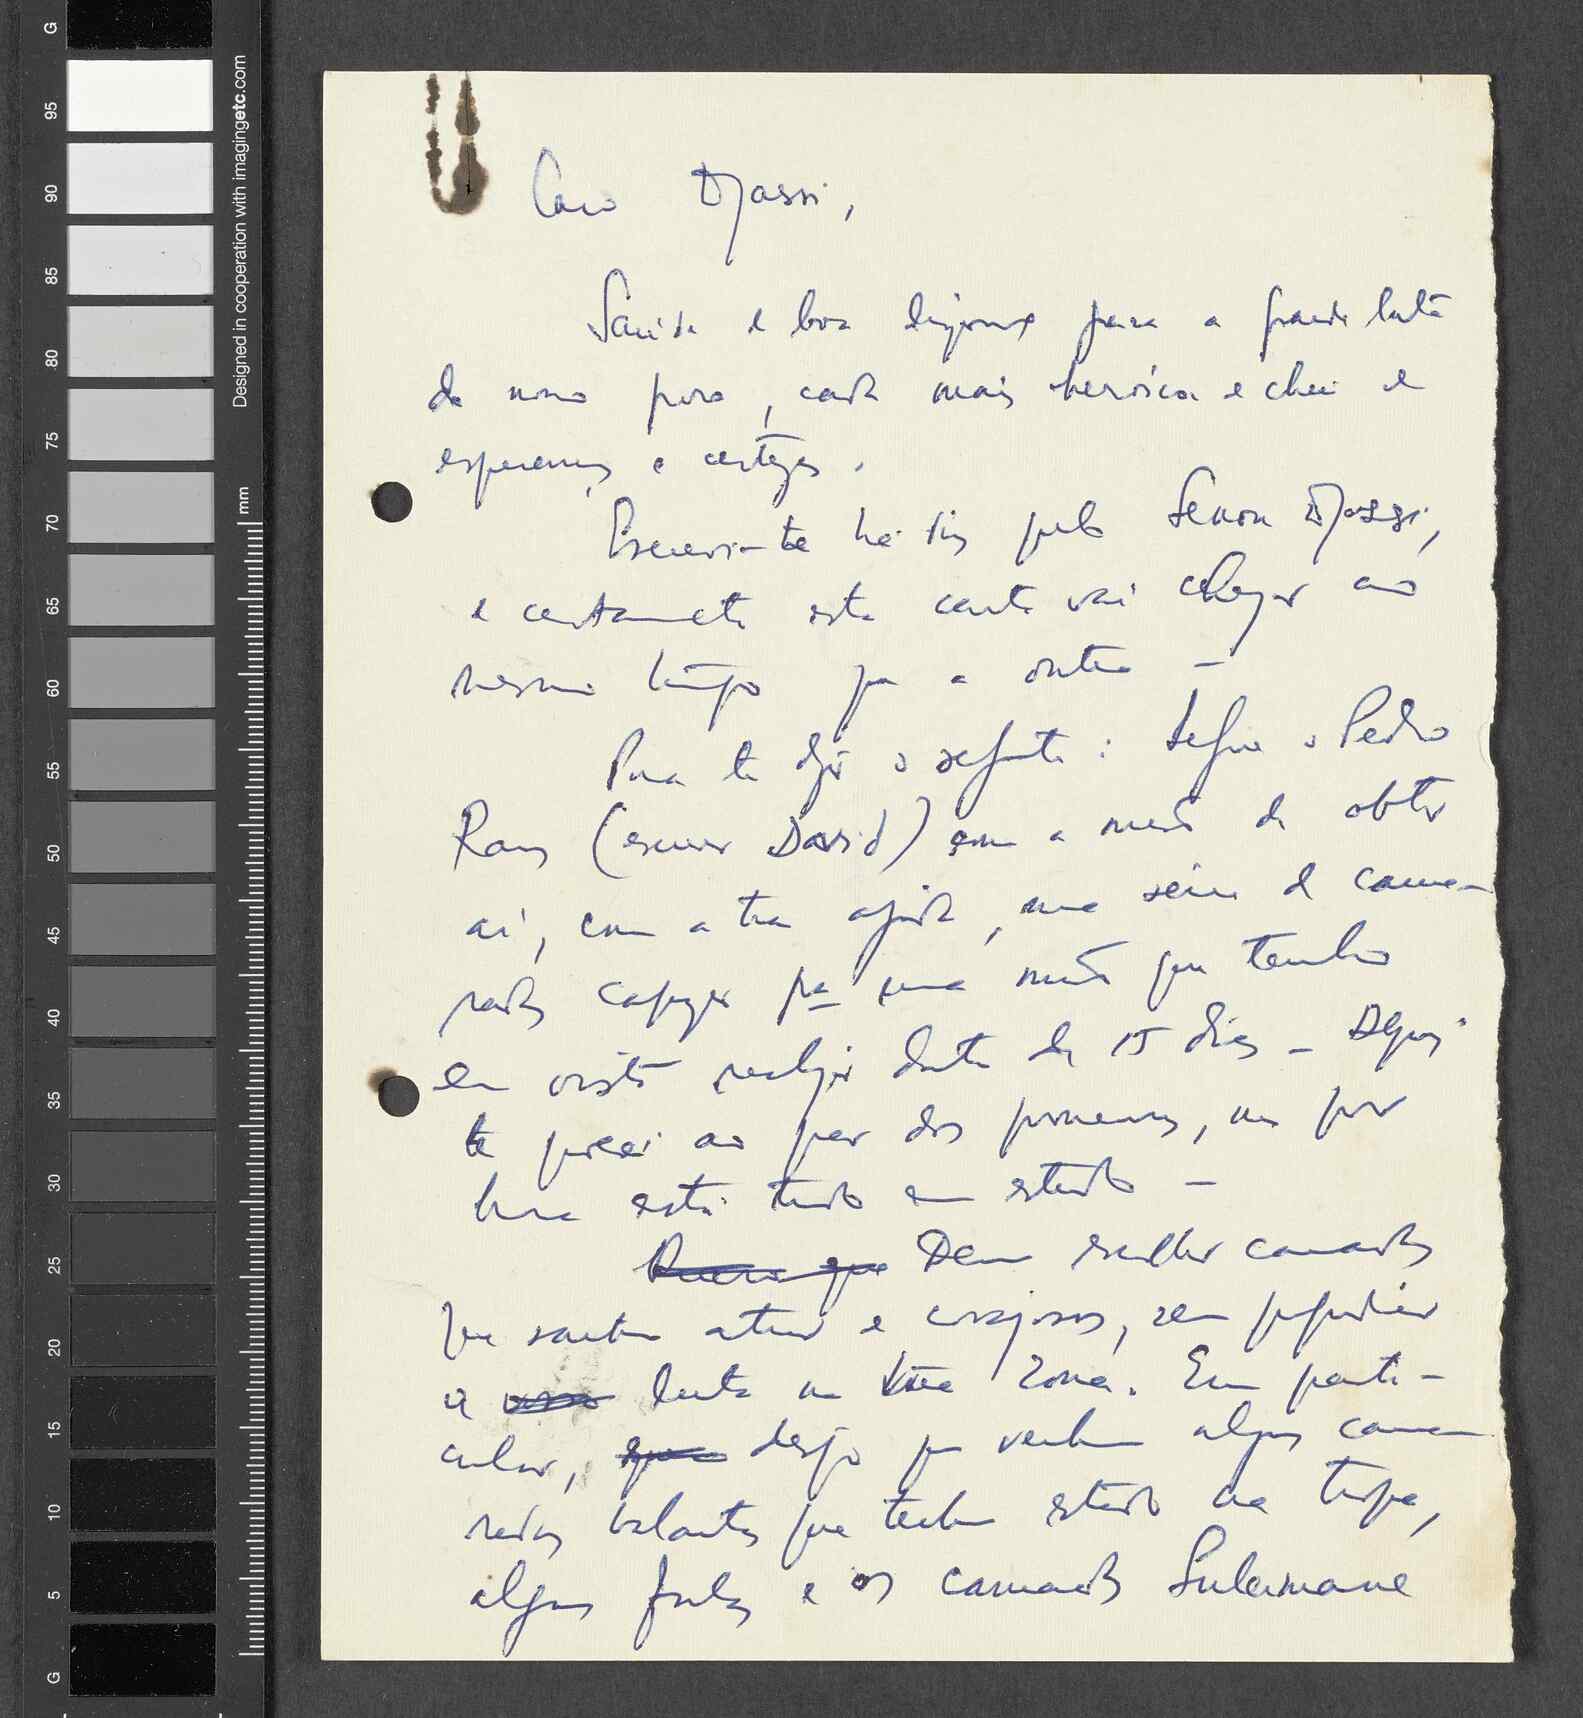 G
95
90
85
80
75
70
65
60
55
50
45
40
35
30
25
20
15
10
5
G
Designed in cooperation with imagingetc.com
mm
Caro Djassi,
Saúde e boa disposição para a grande luta
do nosso povo, cada mais heróica e cheia de
esperanças e certezas.
Escrevi-te há dias pelo Senou Djassi,
e certamente esta carta vai chegar ao
mesmo tempo que a outra –
Para te dizer o seguinte: segue o Pedro
Ramos (escrever David) com a missão de obter
aí, com a tua ajuda, uma série de cama-
radas capazes pa uma missão que tenho
em vista realizar dentro de 15 dias – Depois
te porei ao par dos pormenores, mas por
hora está tudo em estudo –
Quero que Devem escolher camaradas
que saibam atuar e corajosos, sem prejudicar
a luta na tua zona. Em parti-
cular, que desejo que venham alguns cama
radas balantas que tenham estado na tropa,
alguns fulas e os camaradas Sulemane